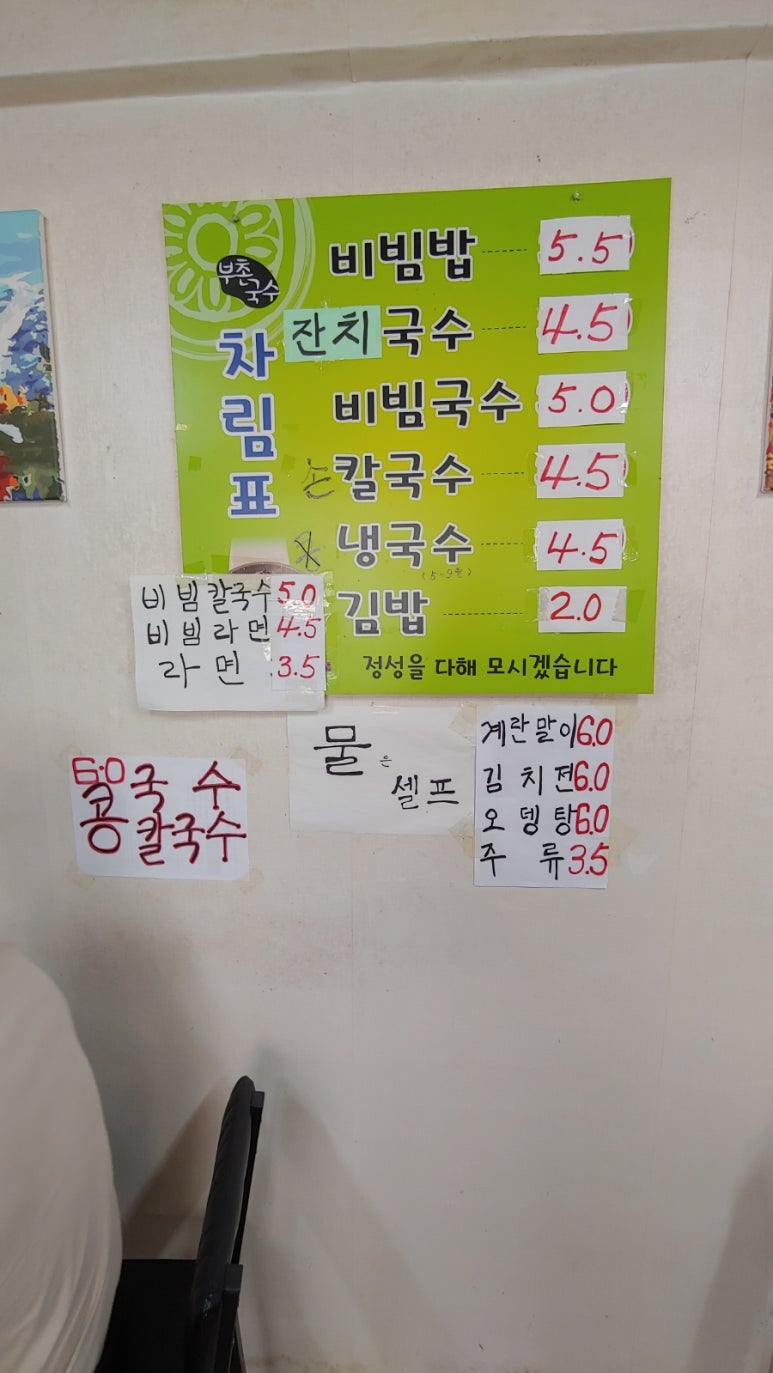 부촌
국수
차림표
비빔밥 5.5
잔치국수 4.5
비빔국수 5.0
손칼국수 4.5
냉국수 4.5
(5~9월)
김밥 2.0
정성을 다해 모시겠습니다
비빔칼국수 5.0
비빔라면 4.5
라면 3.5
6.0
콩국수
콩칼국수
물은
셀프
계란말이 6.0
김치전 6.0
오뎅탕 6.0
주류 3.5